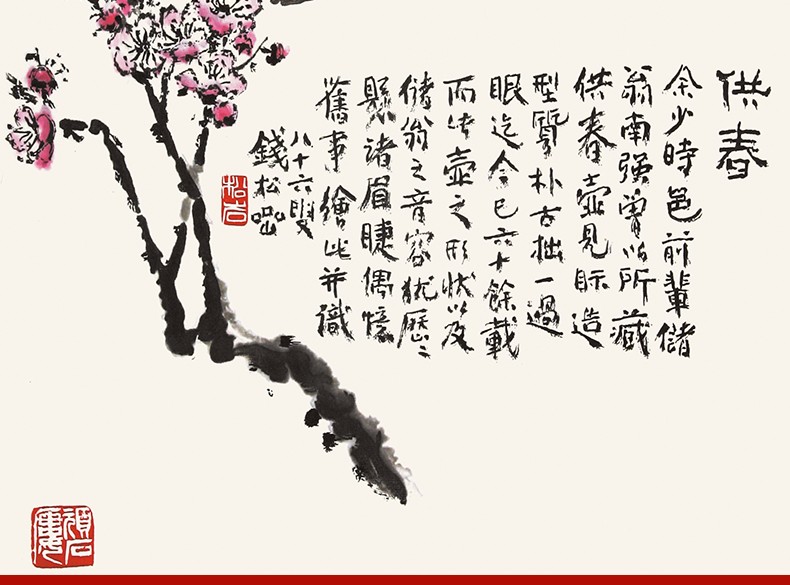 供春
余少時邑前輩儲
翁南强曾以所藏
供春壺見眎造
型質朴古拙一過
眼迄今已六十餘載
而此壺之形狀以及
儲翁之音容猶歷歷
懸諸眉睫偶憶
舊事繪此并識
八十六叟
錢松嵒
松嵒